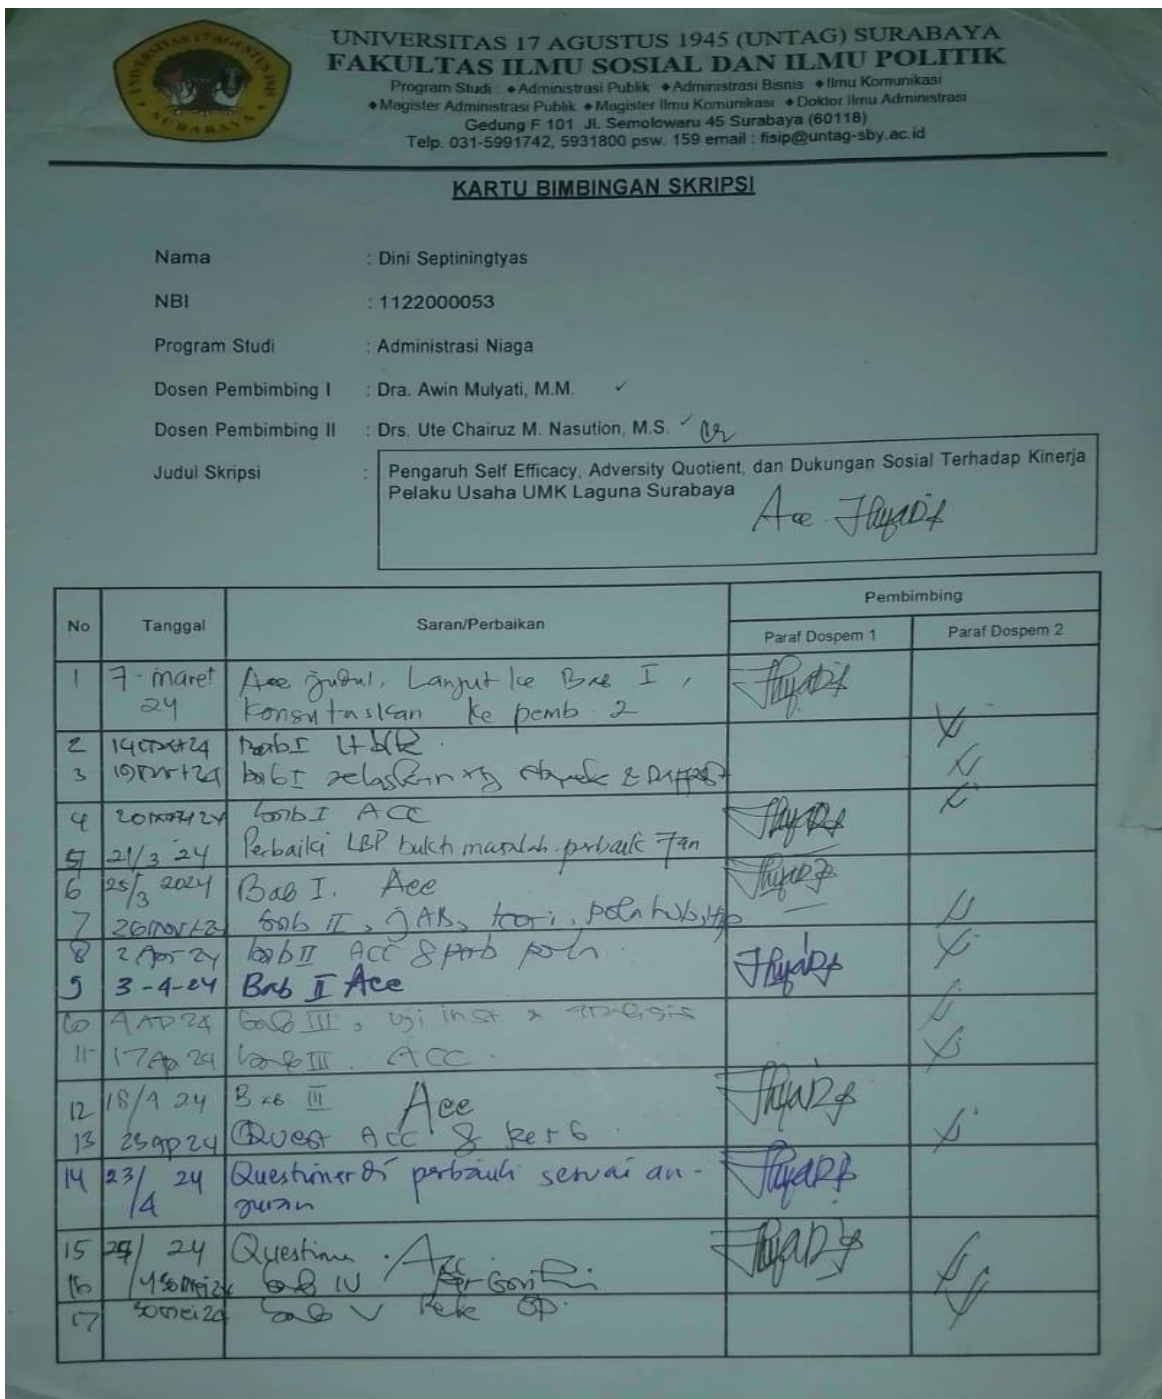 UNIVERSITAS 17 AGUSTUS 1945 (UNTAG) SURABAYA
FAKULTAS ILMU SOSIAL DAN ILMU POLITIK
Program Studi : ◆Administrasi Publik ◆Administrasi Bisnis ◆Ilmu Komunikasi
◆Magister Administrasi Publik ◆Magister Ilmu Komunikasi ◆Doktor Ilmu Administrasi
Gedung F 101 Jl. Semolowaru 45 Surabaya (60118)
Telp. 031-5991742, 5931800 psw. 159 email : fisip@untag-sby.ac.id
SURABAYA
KARTU BIMBINGAN SKRIPSI
Nama : Dini Septiningtyas
NBI : 1122000053
Program Studi : Administrasi Niaga
Dosen Pembimbing I : Dra. Awin Mulyati, M.M.
Dosen Pembimbing II : Drs. Ute Chairuz M. Nasution, M.S.
Judul Skripsi : Pengaruh Self Efficacy, Adversity Quotient, dan Dukungan Sosial Terhadap Kinerja
Pelaku Usaha UMK Laguna Surabaya
Acc
No Tanggal Saran/Perbaikan Pembimbing
Paraf Dospem 1 Paraf Dospem 2
1 7 - maret Acc judul, Lanjut ke Bab I,
24 Konsultasikan ke pemb. 2
2 bab I
3 bab I
4 bab I ACC
5 21/3 24 Perbaiki LBP masalah
6 25/3 2024 Bab I. Acc
7 bab II, teori, pola
8 2 Apr 24 bab II ACC & pola
9 3-4-24 Bab II Acc
10 4 Ap 24 bab III, uji inst & analisis
11 17 Ap 24 bab III. ACC.
12 18/4 24 Bab III Acc
13 23 Ap 24 Quest ACC &
14 23/4 24 Questioner di perbaiki sesuai an-
juran
15 24 Acc
16 bab IV
17 30 mei 24 bab V